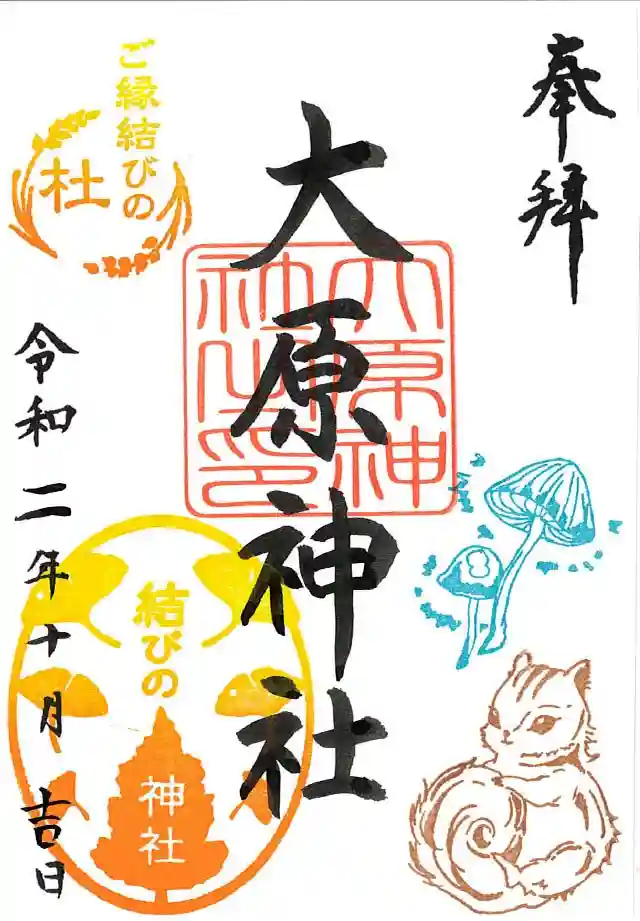 奉拝
大原神社
大原神社之印
ご縁結びの
杜
令和二年十月吉日
結びの
神社